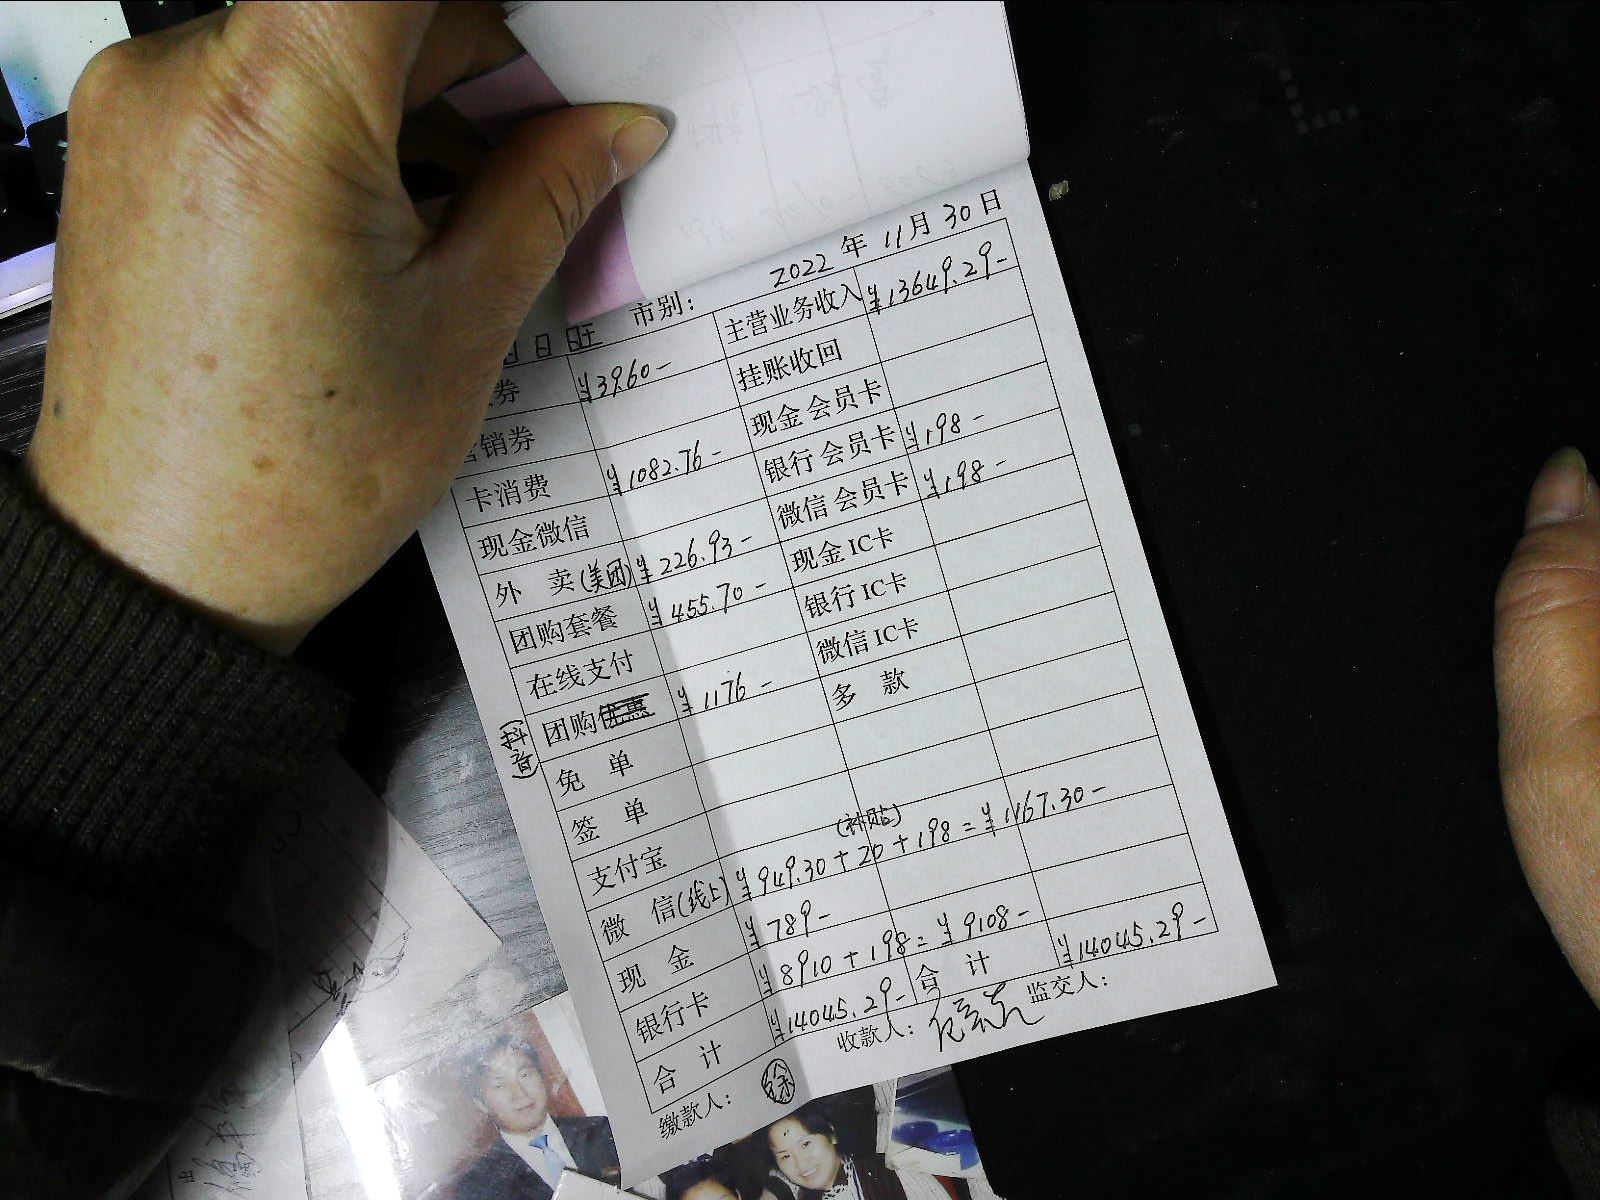 2022 年 11 月 30 日
市别:
券 ¥39.60- 主营业务收入 ¥13649.29-
销券 挂账收回
卡消费 ¥1082.76- 现金 会员卡
现金微信 银行 会员卡 ¥198-
外 卖(美团) ¥226.93- 微信 会员卡 ¥198-
团购套餐 ¥455.70- 现金 IC卡
在线支付 银行 IC卡
(抖音) 团购优惠 ¥1176- 微信 IC卡
免 单 多 款
签 单
支付宝
(补贴)
微 信(线上) ¥949.30+20+198=¥1167.30-
现 金 ¥789-
银行卡 ¥8910+198=¥9108-
合 计 ¥14045.29- 合 计 ¥14045.29-
缴款人: 徐 收款人: 监交人: